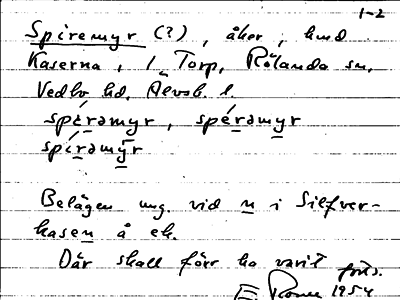 1-2
Spiremyr (?), åker, hmd
Kaserna, 1 Torp, Rölanda sn,
Vedbo hd. Älvsb. l.
spíramyr, spéramyr
spíramyr
Belägen ung. vid n i Silfver-
hasen å ek.
Där skall förr ha varit forts.
1954